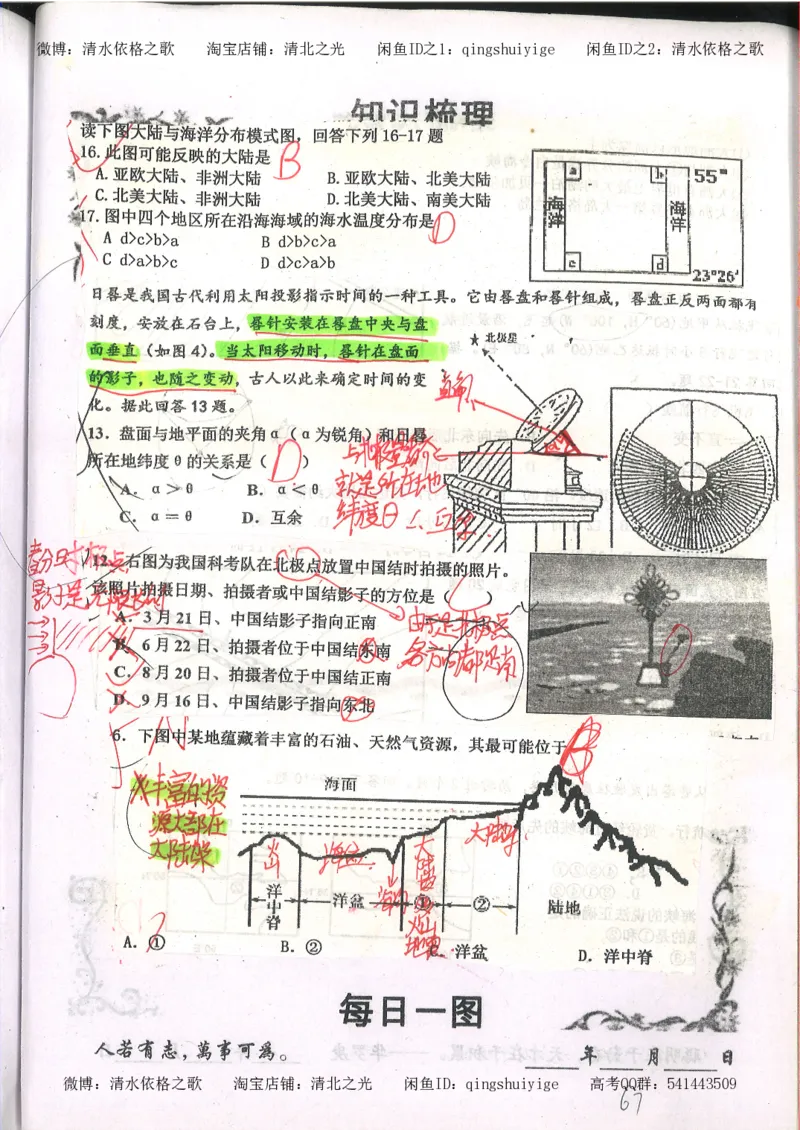 微博：清水依格之歌 淘宝店铺：清北之光 闲鱼ID之1：qingshuiyige 闲鱼ID之2：清水依格之歌
知识梳理
读下图大陆与海洋分布模式图，回答下列16-17题
16.此图可能反映的大陆是 B
A.亚欧大陆、非洲大陆 B.亚欧大陆、北美大陆
C.北美大陆、非洲大陆 D.北美大陆、南美大陆
17.图中四个地区所在沿海海域的海水温度分布是 D
A d>c>b>a B d>b>c>a
C d>a>b>c D d>c>a>b
a b 55°
海洋 海洋
c d 23°26′
日晷是我国古代利用太阳投影指示时间的一种工具。它由晷盘和晷针组成，晷盘正反两面都有
刻度，安放在石台上，晷针安装在晷盘中央与盘
面垂直（如图4）。当太阳移动时，晷针在盘面
的影子，也随之变动，古人以此来确定时间的变
化。据此回答13题。
13．盘面与地平面的夹角α（α为锐角）和日晷
所在地纬度θ的关系是（ D ）
A．α＞θ B．α＜θ
C．α＝θ D．互余
北极星
就是所在地
纬度θ
12．右图为我国科考队在北极点放置中国结时拍摄的照片。
该照片拍摄日期、拍摄者或中国结影子的方位是（ ）
A．3月21日、中国结影子指向正南
B．6月22日、拍摄者位于中国结东南
C．8月20日、拍摄者位于中国结正南
D．9月16日、中国结影子指向东北
由于是北极点
各方向都是南
6．下图中某地蕴藏着丰富的石油、天然气资源，其最可能位于 B
丰富的资
源大部在
大陆架
海面
火山 海盆 大陆坡 大陆架
洋中脊 洋盆 ① ② 陆地
A．① B．② C．洋盆 D．洋中脊
每日一图
人若有志，萬事可為。
年 月 日
微博：清水依格之歌 淘宝店铺：清北之光 闲鱼ID：qingshuiyige 高考QQ群：541443509
67